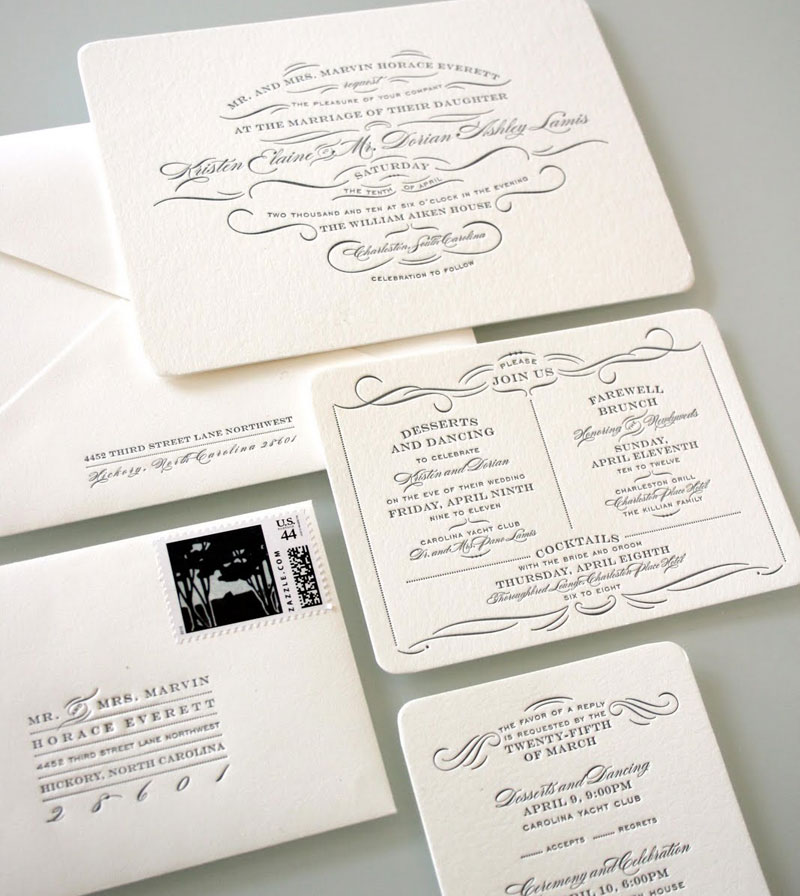 MR. AND MRS. MARVIN HORACE EVERETT
request
THE PLEASURE OF YOUR COMPANY
AT THE MARRIAGE OF THEIR DAUGHTER
Kristen Elaine & Mr. Dorian Ashley Lamis
SATURDAY
THE TENTH OF APRIL
TWO THOUSAND AND TEN AT SIX O'CLOCK IN THE EVENING
THE WILLIAM AIKEN HOUSE
Charleston, South Carolina
CELEBRATION TO FOLLOW
4452 THIRD STREET LANE NORTHWEST
Hickory, North Carolina 28601
PLEASE
JOIN US
DESSERTS
AND DANCING
TO CELEBRATE
Kristen and Dorian
ON THE EVE OF THEIR WEDDING
FRIDAY, APRIL NINTH
NINE TO ELEVEN
CAROLINA YACHT CLUB
Dr. and Mrs. Pano Lamis
FAREWELL
BRUNCH
Honoring the Newlyweds
SUNDAY,
APRIL ELEVENTH
TEN TO TWELVE
CHARLESTON GRILL
Charleston Place Hotel
THE KILLIAN FAMILY
COCKTAILS
WITH THE BRIDE AND GROOM
THURSDAY, APRIL EIGHTH
Thoroughbred Lounge, Charleston Place Hotel
SIX TO EIGHT
U.S.
44
ZAZZLE.COM
MR. & MRS. MARVIN
HORACE EVERETT
4452 THIRD STREET LANE NORTHWEST
HICKORY, NORTH CAROLINA
28601
THE FAVOR OF A REPLY
IS REQUESTED BY THE
TWENTY-FIFTH
OF MARCH
Desserts and Dancing
APRIL 9, 9:00PM
CAROLINA YACHT CLUB
ACCEPTS REGRETS
Ceremony and Celebration
APRIL 10, 6:00PM
HOUSE